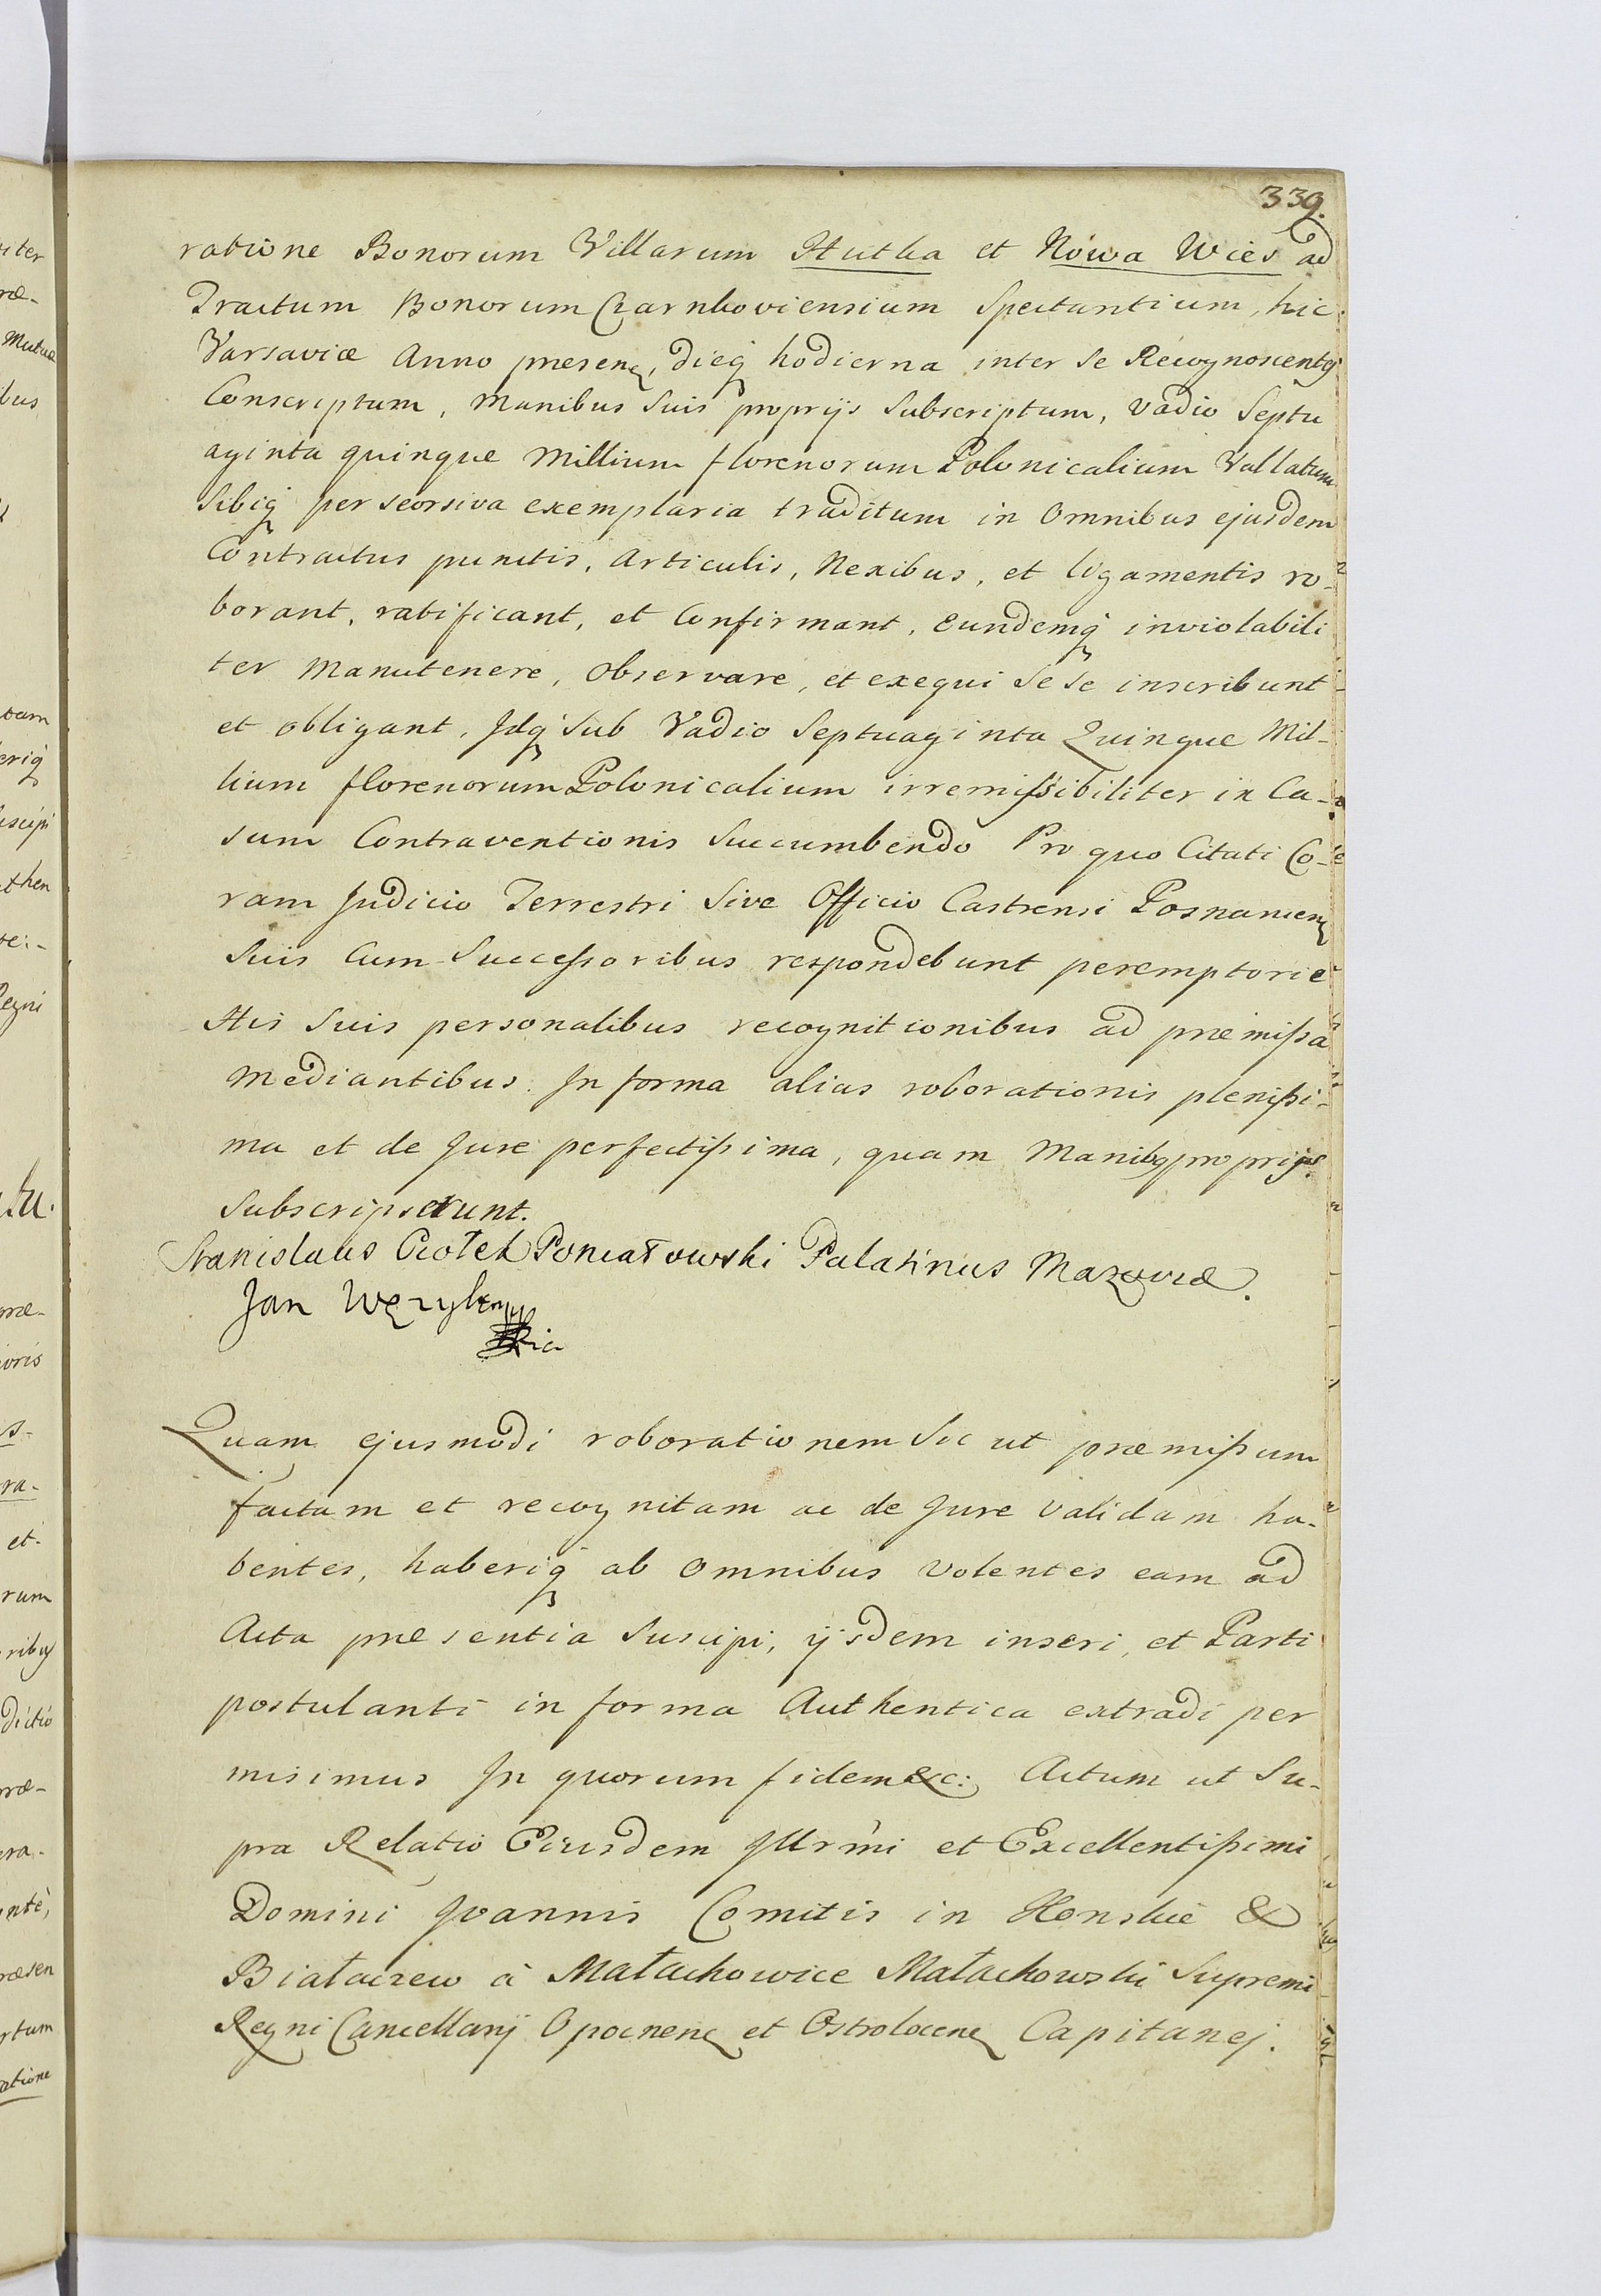 339.
ratione Bonorum Villarum Hutka et Nowa Wies ad
Tractum Bonorum Czarnkoviensium Spectantium, hic
Varsaviæ Anno præsenꝫ, dieqꝫ hodierna inter se Recognoscentes
Conscriptum, manibus suis proprijs subscriptum, vadio Septu
aginta quinque Millium florenorum Polonicalium Vallatum
sibiqꝫ per seorsiva exemplaria traditum in omnibus ejusdem
Contractus punctis, articulis, Nexibus, et ligamentis ro-
borant, ratificant, et Confirmant, Eundemqꝫ inviolabili
ter Manutenere, observare, et exequi sese inscribunt
et obligant, Idqꝫ sub Vadio Septuaginta Quinque Mil-
lium florenorum Polonicalium irremissibiliter in Ca-
sum Contraventionis Succumbendo Pro quo Citati Co-
ram Judicio Terrestri Sive Officio Castrensi Posnanienꝫ
suis Cum Successoribus respondebunt peremptorie
His suis personalibus recognitionibus ad præmissa
mediantibus. In forma alias roborationis plenissi-
ma et de Jure perfectissima, quam Manibꝫ proprijs
subscripserunt.
Stanislaus Ciołek Poniatowski Palatinus Mazoviæ.
Jan
Quam ejusmodi roborationem Sic ut præmissum
factam et recognitam ac de Jure validam ha-
bentes, haberiqꝫ ab omnibus volentes eam ad
Acta præsentia Suscipi, ijsdem inseri, et Parti
postulanti in forma Authentica extradi per
misimus In quorum fidem &c: Actum ut Su-
pra Relatio Eiusdem Illrmi et Excellentissimi
Domini Joannis Comitis in Konskie &
Białaczew à Małachowice Małachowski Supremi
Regni Cancellarij Opocnenꝫ et Ostrolocenꝫ Capitanej.